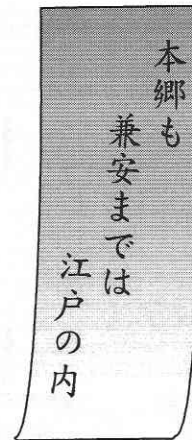 本郷も
兼安までは
江戸の内